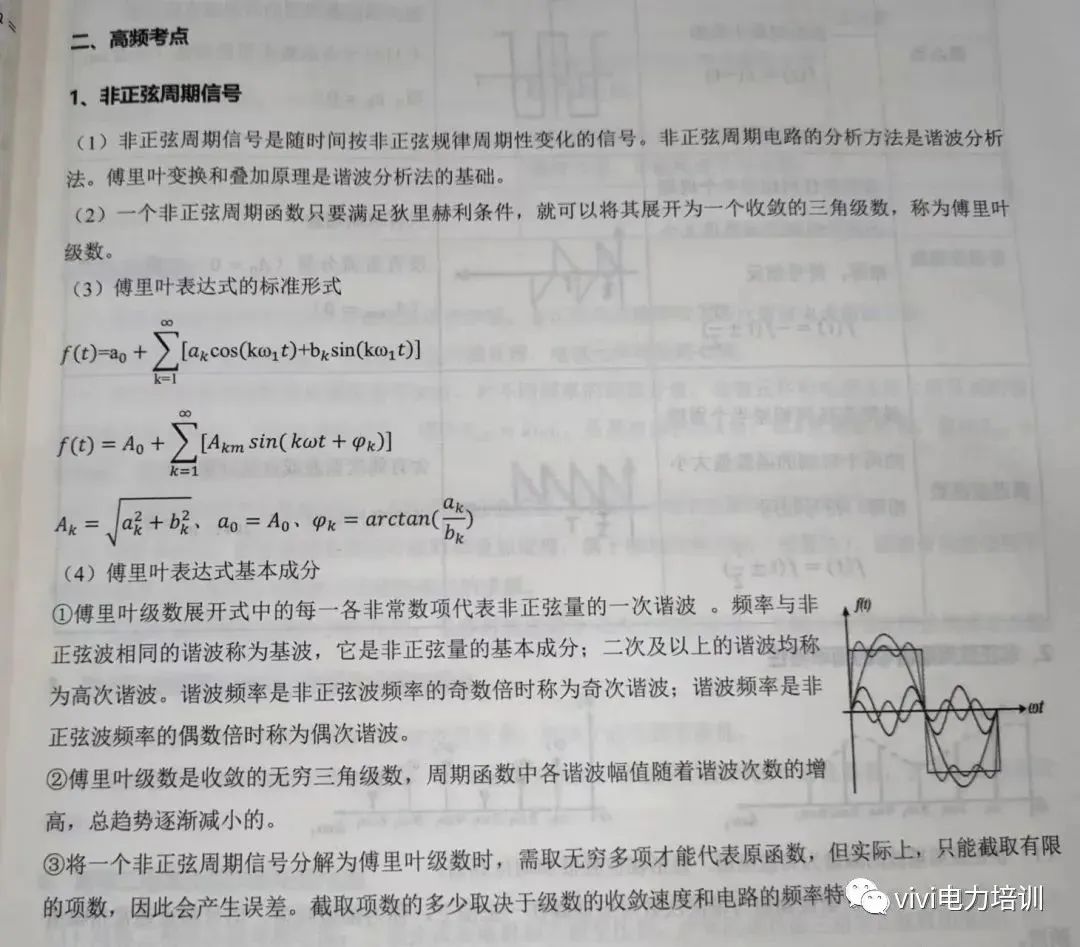 二、高频考点
1、非正弦周期信号
（1）非正弦周期信号是随时间按非正弦规律周期性变化的信号。非正弦周期电路的分析方法是谐波分析
法。傅里叶变换和叠加原理是谐波分析法的基础。
（2）一个非正弦周期函数只要满足狄里赫利条件，就可以将其展开为一个收敛的三角级数，称为傅里叶
级数。
（3）傅里叶表达式的标准形式
f(t)=a₀ + ∑_{k=1}^{∞} [aₖcos(kω₁t)+bₖsin(kω₁t)]
f(t) = A₀ + ∑_{k=1}^{∞} [Aₖₘ sin( kωt + φₖ)]
Aₖ = √(aₖ² + bₖ²)、a₀ = A₀、φₖ = arctan(aₖ/bₖ)
（4）傅里叶表达式基本成分
①傅里叶级数展开式中的每一各非常数项代表非正弦量的一次谐波 。频率与非
正弦波相同的谐波称为基波，它是非正弦量的基本成分；二次及以上的谐波均称
为高次谐波。谐波频率是非正弦波频率的奇数倍时称为奇次谐波；谐波频率是非
正弦波频率的偶数倍时称为偶次谐波。
f(t)
ωt
②傅里叶级数是收敛的无穷三角级数，周期函数中各谐波幅值随着谐波次数的增
高，总趋势逐渐减小的。
③将一个非正弦周期信号分解为傅里叶级数时，需取无穷多项才能代表原函数，但实际上，只能截取有限
的项数，因此会产生误差。截取项数的多少取决于级数的收敛速度和电路的频率特
vivi电力培训